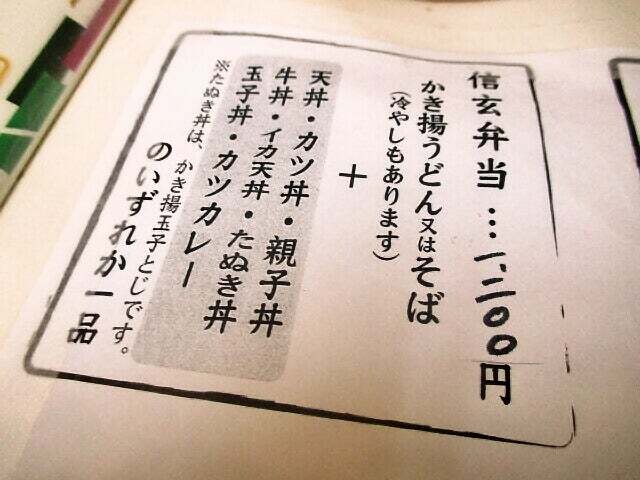 信玄弁当…一、二〇〇円
かき揚うどん又はそば
（冷やしもあります）
＋
天丼・カツ丼・親子丼
牛丼・イカ天丼・たぬき丼
玉子丼・カツカレー
※たぬき丼は、かき揚玉子とじです。
のいずれか一品